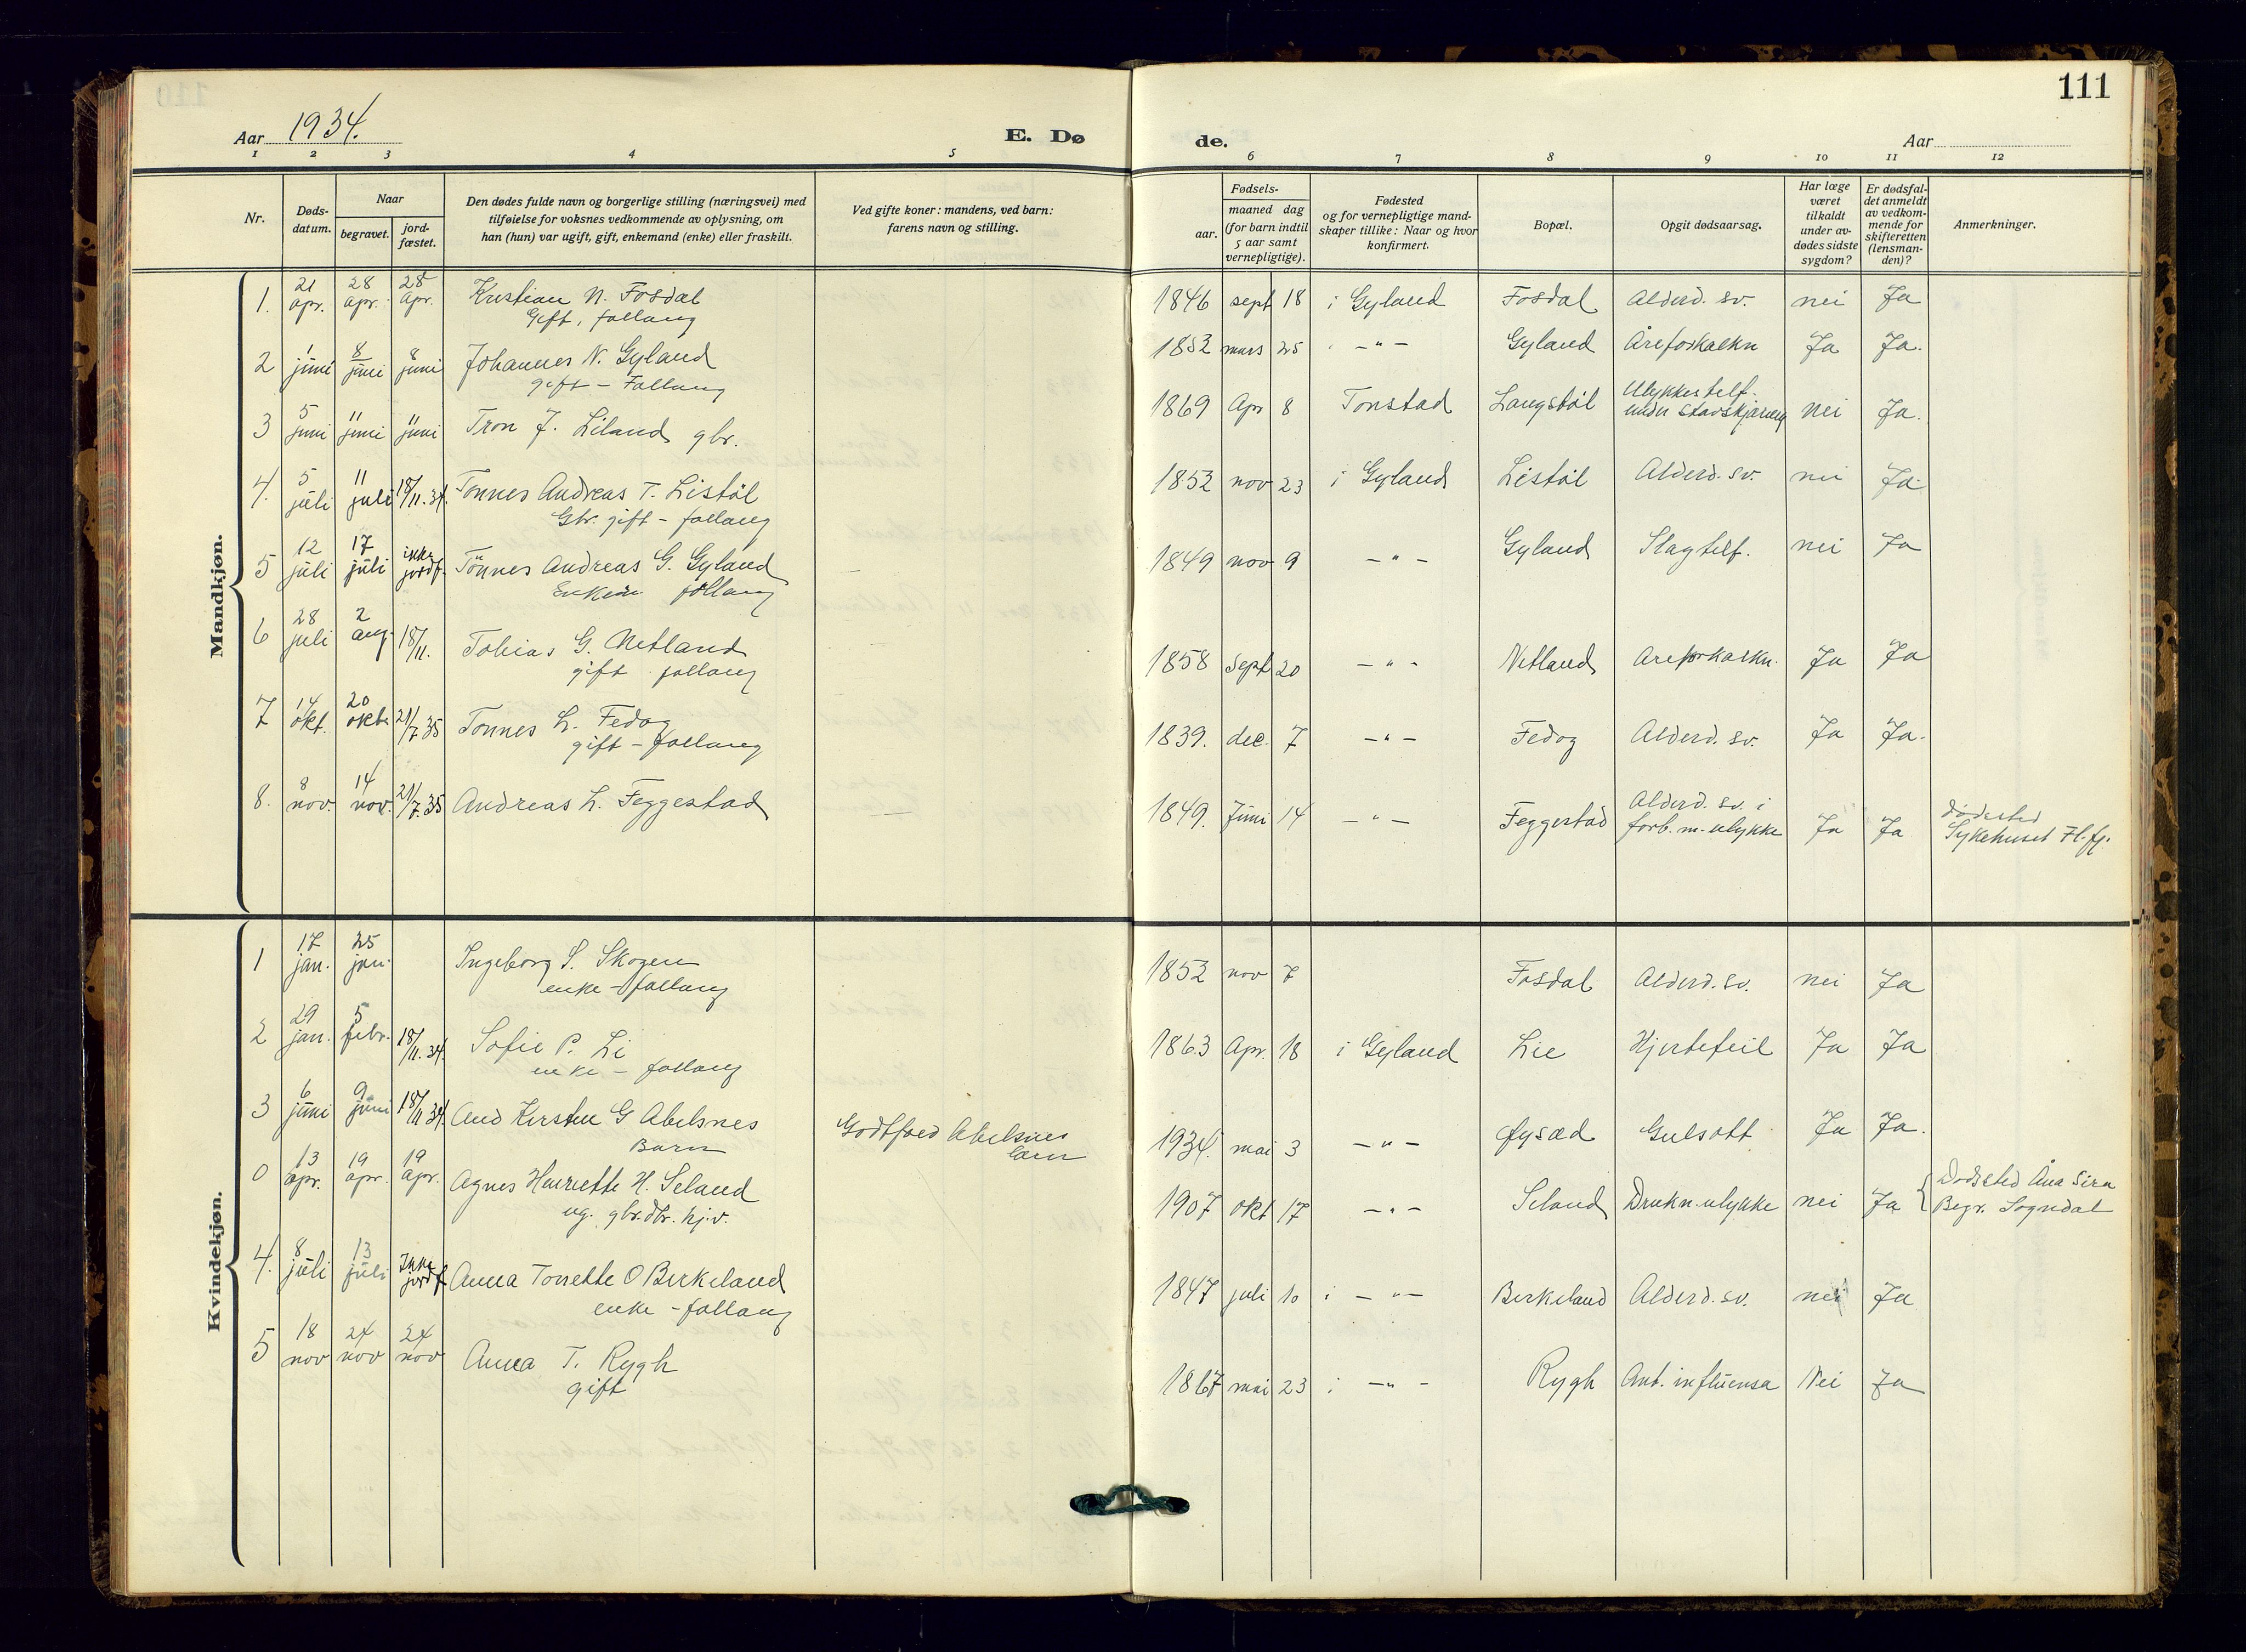 111
Aar 1934. E. Dø de. Aar
1 2 3 4 5 6 7 8 9 10 11 12
Nr.
Døds-
datum.
Naar
begravet.
jord-
fæstet.
Den dødes fulde navn og borgerlige stilling (næringsvei) med
tilføielse for voksnes vedkommende av oplysning, om
han (hun) var ugift, gift, enkemand (enke) eller fraskilt.
Ved gifte koner: mandens, ved barn:
farens navn og stilling.
Fødsels-
aar.
maaned dag
(for barn indtil
5 aar samt
vernepligtige).
Fødested
og for vernepligtige mand-
skaper tillike: Naar og hvor
konfirmert.
Bopæl.
Opgit dødsaarsag.
Har læge
været
tilkaldt
under av-
dødes sidste
sygdom?
Er dødsfal-
det anmeldt
av vedkom-
mende for
skifteretten
(lensman-
den)?
Anmerkninger.
Mandkjøn.
1. 21 apr. 28 apr. 28 apr. Kristian N. Fosdal 1846 sept 18 i Gyland Fosdal Alderd. sv. nei Ja
Gift, follaug
2 1 juni 8 juni 8 juni Johannes N. Gyland 1852 mars 25 - " - Gyland Åreforkalkn Ja Ja.
gift - Follaug
3 5 juni 11 juni 11 juni Tron J. Liland gbr. 1869 Apr 8 Tonstad Langstøl Ulykkestilf. under stavskjæring nei Ja.
4. 5 juli 11 juli 18/11.34. Tønnes Andreas T. Listøl 1852 nov 23 i Gyland Listøl Alderd. sv. nei Ja.
Gbr. gift - follaug
5 12 juli 17 juli ikke jordf. Tönnes Andreas G. Gyland 1849 nov 9 - " - Gyland Slagtilf. nei Ja
Enkem follaug
6 28 juli 2 aug. 18/11. Tobias G. Netland 1858 sept 20 - " - Netland Areforkalkn. Ja Ja
gift follaug
7 14 okt. 20 okt. 21/7.35 Tonnes L. Fedog 1839. dec. 7 - " - Fedog Alderd. sv. Ja Ja.
gift - follaug
8. 8 nov. 14 nov. 21/7.35 Andreas L. Feggestad 1849. Juni 14 - " - Feggestad Alderd. sv. i forb. m. ulykke Ja Ja dødssted Sykehuset Fl.fj.
Kvindekjøn.
1 17 jan. 25 jan. Ingeborg S. Skogen 1852 nov 7 Fosdal Alderd. sv. nei Ja
enke - follaug
2 29 jan. 5 febr. 18/11.34. Sofie P. Li 1863 Apr. 18 i Gyland Lie Hjertefeil Ja Ja
enke - follaug
3 6 juni 9 juni 18/11 34. Aud Kirsten G Abelsnes Godtfred Abelsnes 1934. mai 3 - " - Øysæd Gulsott Ja Ja.
Barn
0 13 apr. 19 apr. 19 apr. Agnes Henriette H. Seland 1907 okt 17 - " - Seland Drukn.ulykke nei Ja Dødssted Åna Sira
ug. gbr.dtr. hj.v. Begr. Sogndal
4. 8 juli 13 juli Ikke jordf. Anna Tonette O Birkeland 1847 juli 10 i - " - Birkeland Alderd. sv. nei Ja
enke - follaug
5 18 nov 24 nov 24 nov Anna T. Rygh 1867 mai 23 i - " - Rygh Ant. influensa Nei Ja
gift